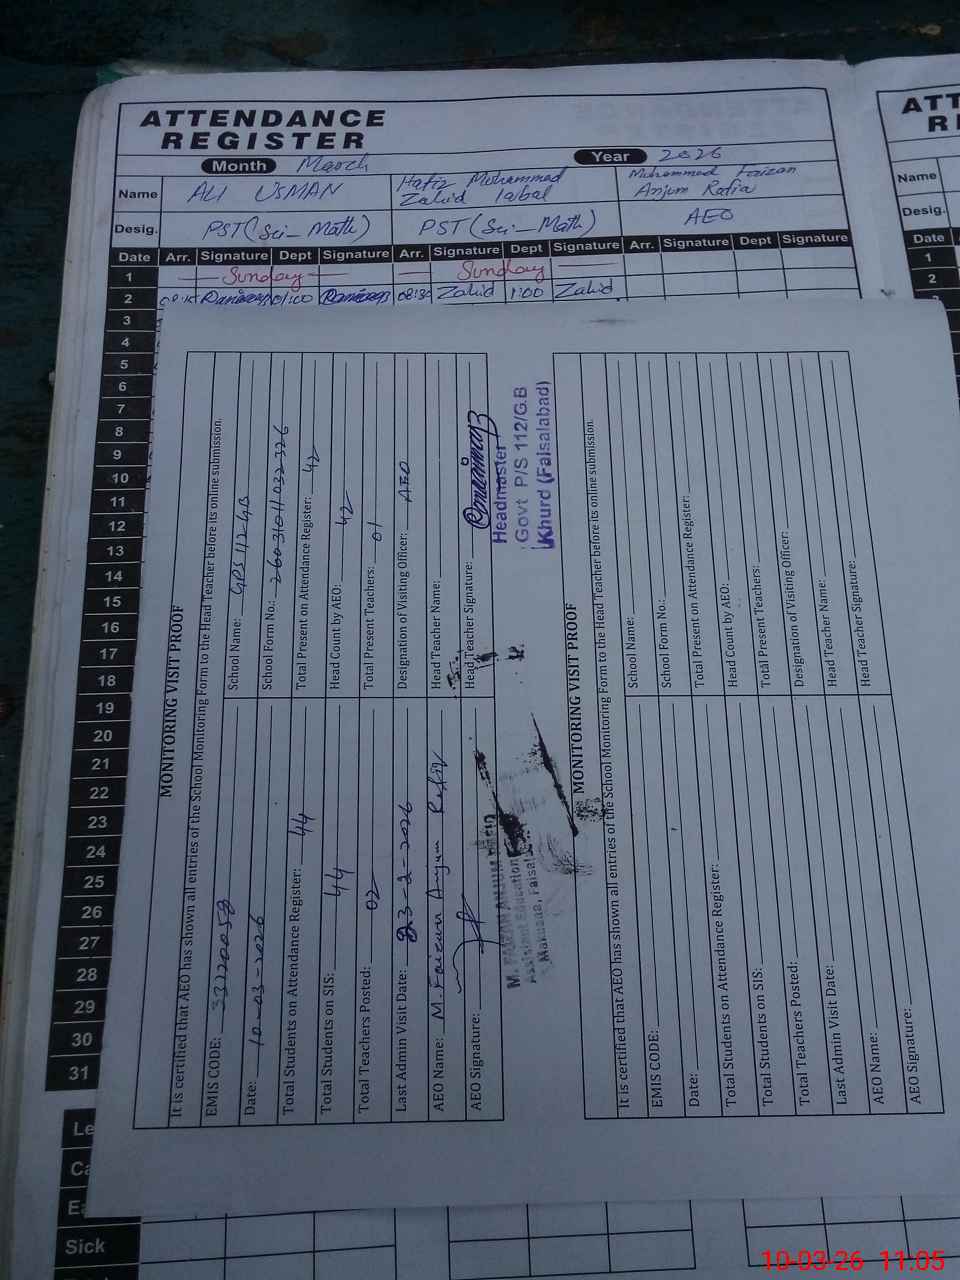 ATTENDANCE
REGISTER
Month March Year 2026
Name ALI USMAN Hafiz Muhammad Zahid Iqbal Muhammad Faizan Anjum Rafiq
Desig. PST (Sci-Math) PST (Sci-Math) AEO
Date Arr. Signature Dept Signature Arr. Signature Dept Signature Arr. Signature Dept Signature
1 Sunday Sunday
2 01:00 08:30 Zahid 1:00 Zahid
3
4
5
6
7
8
9
10
11
12
13
14
15
16
17
18
19
20
21
22
23
24
25
26
27
28
29
30
31
Le
Ca
Sick
ATT
R
Name
Desig.
Date
1
2
MONITORING VISIT PROOF
It is certified that AEO has shown all entries of the School Monitoring Form to the Head Teacher before its online submission.
EMIS CODE: 33220058 School Name: GPS 112 GB
Date: 10-03-2026 School Form No.: 26031011032326
Total Students on Attendance Register: 44 Total Present on Attendance Register: 42
Total Students on SIS: 44 Head Count by AEO: 42
Total Teachers Posted: 02 Total Present Teachers: 01
Last Admin Visit Date: 23-2-2026 Designation of Visiting Officer: AEO
AEO Name: M. Faizan Anjum Rafiq Head Teacher Name:
AEO Signature: Head Teacher Signature:
Headmaster
Govt P/S 112/G.B
Khurd (Faisalabad)
M. FAIZAN ANJUM
Assistant Education
MONITORING VISIT PROOF
It is certified that AEO has shown all entries of the School Monitoring Form to the Head Teacher before its online submission.
EMIS CODE: School Name:
Date: School Form No.:
Total Students on Attendance Register: Total Present on Attendance Register:
Total Students on SIS: Head Count by AEO:
Total Teachers Posted: Total Present Teachers:
Last Admin Visit Date: Designation of Visiting Officer:
AEO Name: Head Teacher Name:
AEO Signature: Head Teacher Signature:
10-03-26 11:05